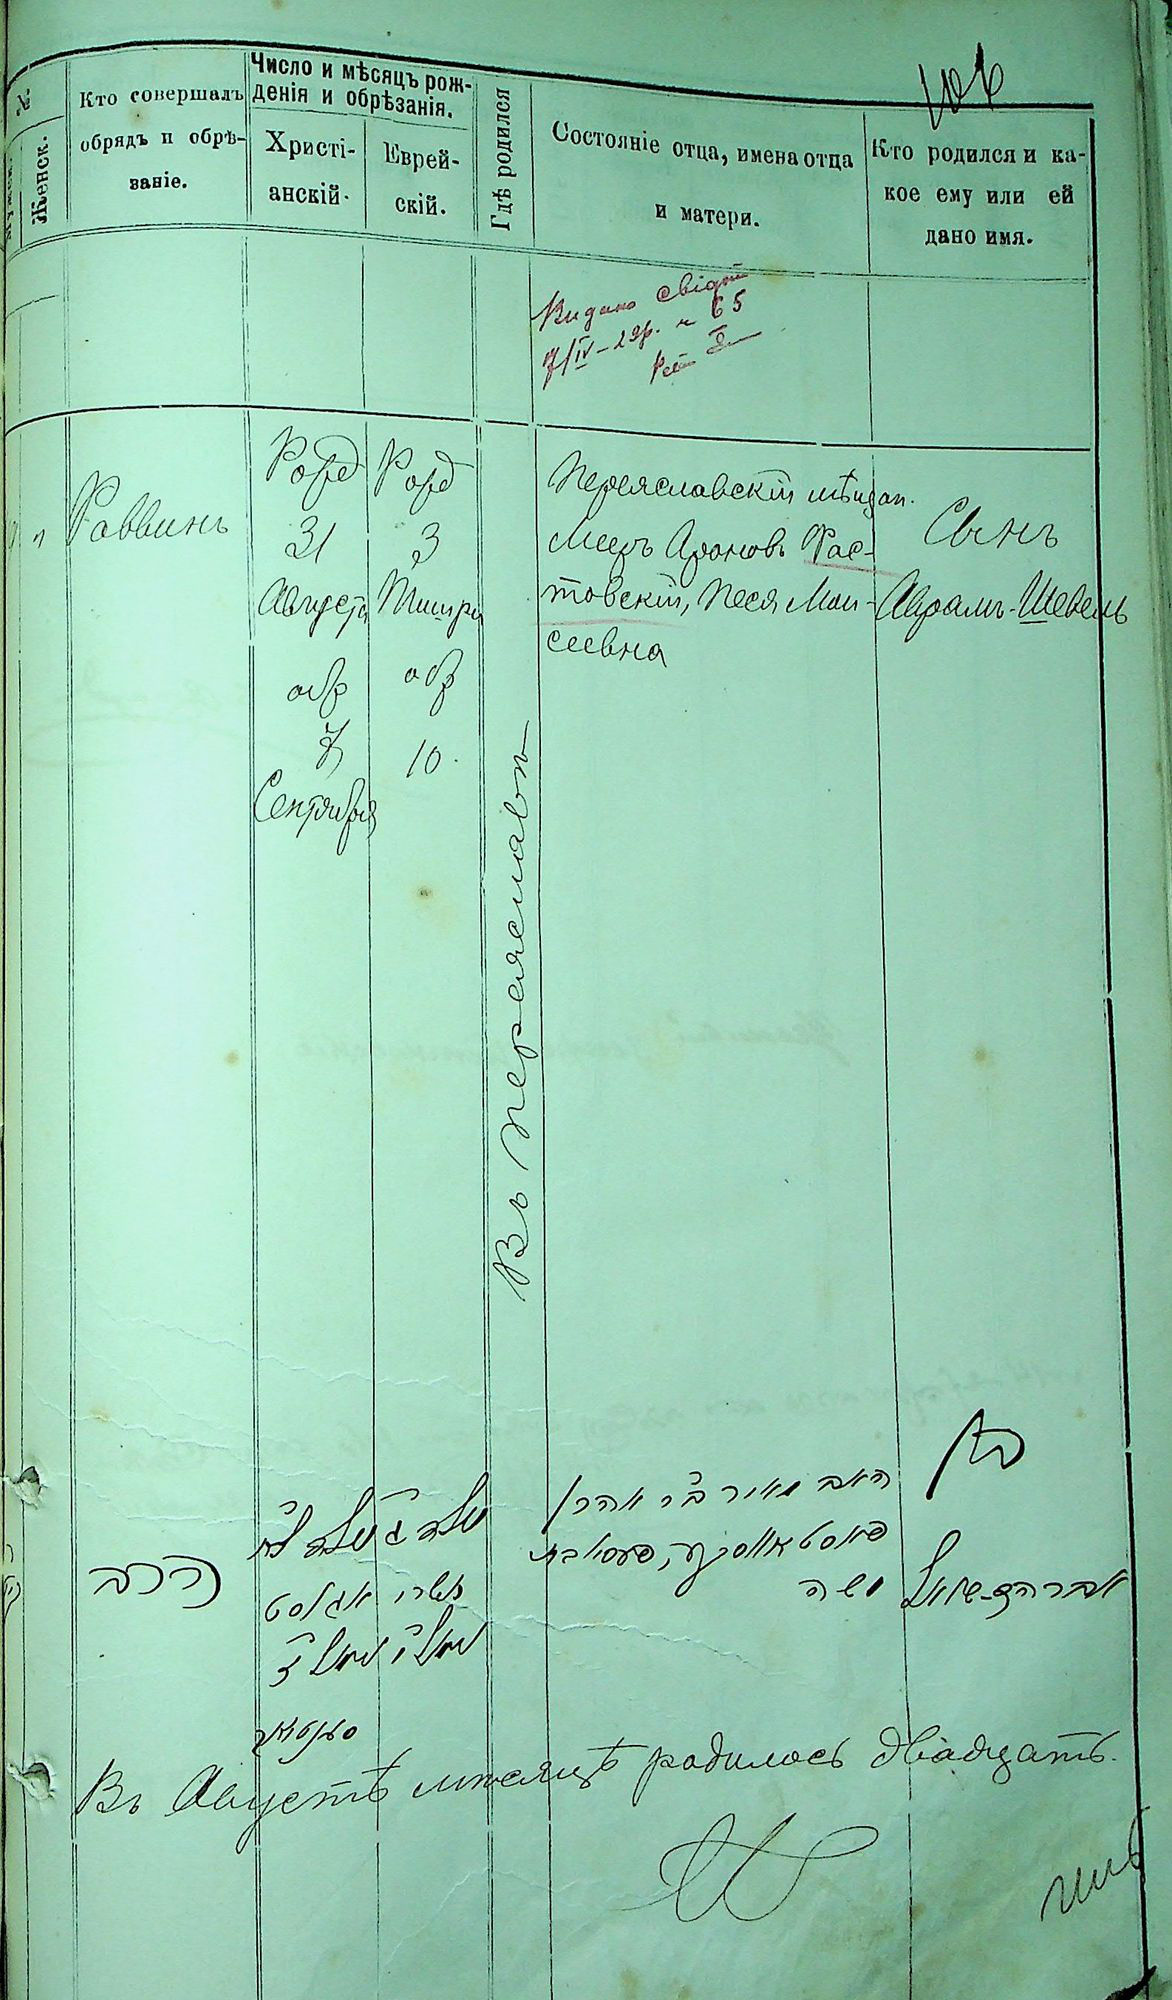 №
Мужск.
Женск.
Кто совершалъ
обрядъ и обрѣ-
заніе.
Число и мѣсяцъ рож-
денія и обрѣзанія.
Христі-
анскій.
Еврей-
скій.
Гдѣ родился
Состояніе отца, имена отца
и матери.
Кто родился и ка-
кое ему или ей
дано имя.
Видано свідот
7/IV-29р. № 65
Раввинъ
Рожд
31
Августа
обр
7
Сентября
Рожд
3
Тишри
обр
10.
Въ Переяславѣ
Переяславскій мѣщан.
Меръ Ароновъ Фас-
товскій, Песя Мои-
сеевна
Сынъ
Аврамъ-Шевель
הרב
נולד ל״א
אגוסט
נימול ז׳
נולד ג׳
תשרי
נימול י׳
האב מאיר ב״ר אהרן
משה
בן
אברהם-שאול
Въ Августѣ мѣсяцѣ родилось двадцать.